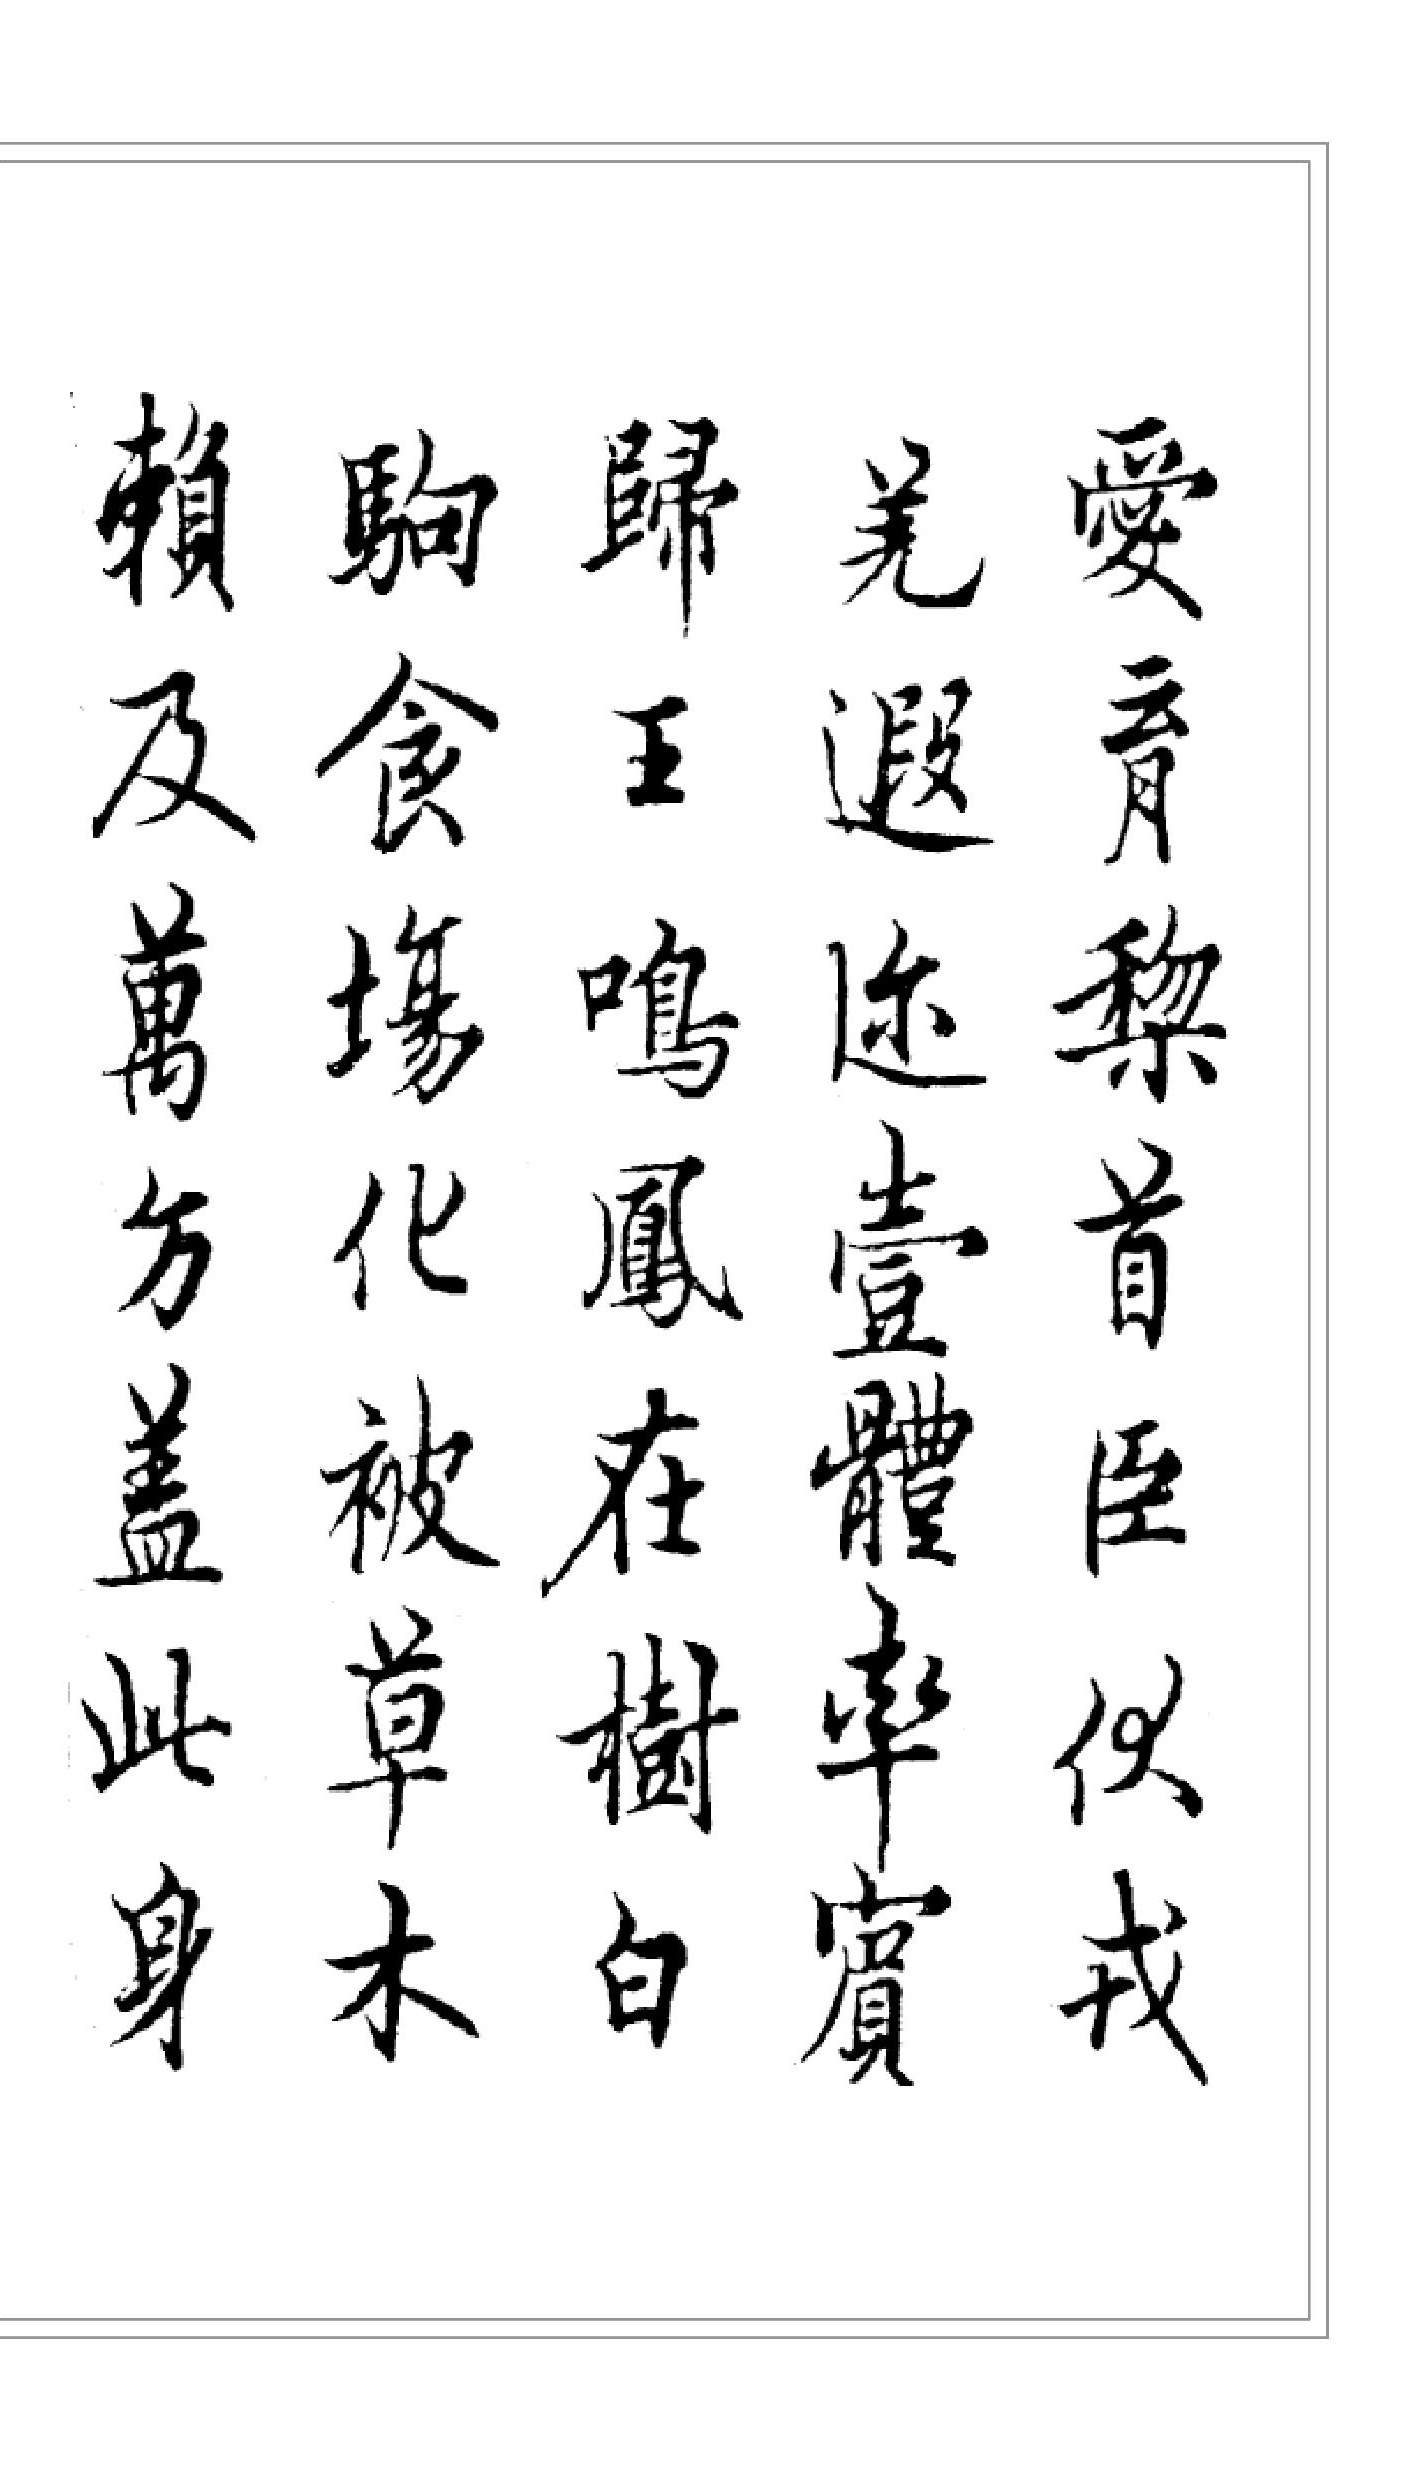 愛育黎首臣伏戎
羌遐迩壹體率賓
歸王鳴鳳在樹白
駒食場化被草木
賴及萬方蓋此身